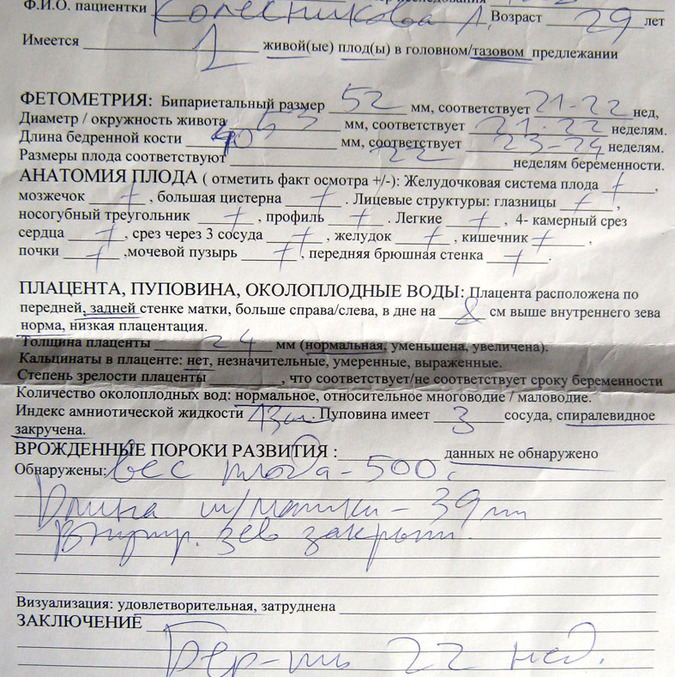 Ф.И.О. пациентки Колесникова А. Возраст 29 лет
Имеется 1 живой(ые) плод(ы) в головном/тазовом предлежании
ФЕТОМЕТРИЯ: Бипариетальный размер 52 мм, соответствует 21-22 нед,
Диаметр / окружность живота 53 мм, соответствует 21-22 неделям.
Длина бедренной кости 40 мм, соответствует 23-24 неделям.
Размеры плода соответствуют 22 неделям беременности.
АНАТОМИЯ ПЛОДА ( отметить факт осмотра +/-): Желудочковая система плода +,
мозжечок +, большая цистерна +. Лицевые структуры: глазницы +,
носогубный треугольник +, профиль +. Легкие +, 4- камерный срез
сердца +, срез через 3 сосуда +, желудок +, кишечник +,
почки +, мочевой пузырь +, передняя брюшная стенка +.
ПЛАЦЕНТА, ПУПОВИНА, ОКОЛОПЛОДНЫЕ ВОДЫ: Плацента расположена по
передней, задней стенке матки, больше справа/слева, в дне на 8 см выше внутреннего зева
норма, низкая плацентация.
Толщина плаценты 24 мм (нормальная, уменьшена, увеличена).
Кальцинаты в плаценте: нет, незначительные, умеренные, выраженные.
Степень зрелости плаценты, что соответствует/не соответствует сроку беременности
Количество околоплодных вод: нормальное, относительное многоводие / маловодие.
Индекс амниотической жидкости 13 см. Пуповина имеет 3 сосуда, спиралевидное
закручена.
ВРОЖДЕННЫЕ ПОРОКИ РАЗВИТИЯ : данных не обнаружено
Обнаружены: вес плода - 500 г
Длина ш/матки - 39 мм
Внутр. зев закрыт.
Визуализация: удовлетворительная, затруднена
ЗАКЛЮЧЕНИЕ
Бер-ть 22 нед.